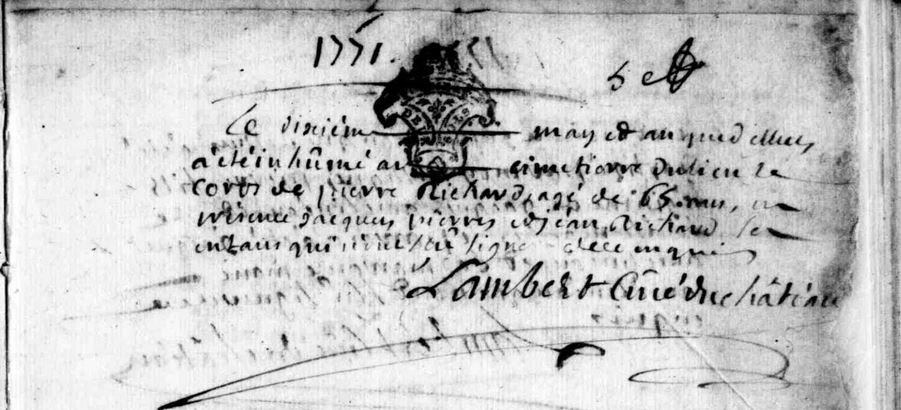 1771.
5e
Le dixiém may et an que dessus
a été inhûmé au cimetierre du lieu le
corps de pierre Richard, agé de 65 ans, en
présence jacques, pierres et jéan Richard ses
enfans qui n'ont sçû signer de ce enquis
Lambert Curé du château